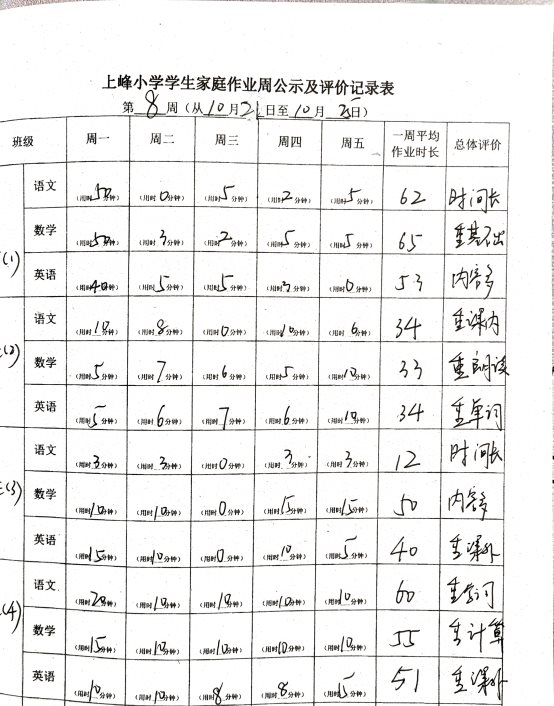 上峰小学学生家庭作业周公示及评价记录表
第 8 周（从 10 月 21 日至 10 月 25 日）
班级 周一 周二 周三 周四 周五 一周平均作业时长 总体评价
(1) 语文 （用时50分钟） （用时0分钟） （用时5分钟） （用时2分钟） （用时5分钟） 62 时间长
数学 （用时50分钟） （用时3分钟） （用时2分钟） （用时5分钟） （用时5分钟） 65
英语 （用时40分钟） （用时5分钟） （用时5分钟） （用时3分钟） （用时0分钟） 53 内容多
(2) 语文 （用时10分钟） （用时8分钟） （用时0分钟） （用时10分钟） （用时6分钟） 34 重课内
数学 （用时5分钟） （用时7分钟） （用时6分钟） （用时5分钟） （用时10分钟） 33 重朗读
英语 （用时5分钟） （用时6分钟） （用时7分钟） （用时6分钟） （用时10分钟） 34 重单词
(3) 语文 （用时3分钟） （用时3分钟） （用时0分钟） （用时3分钟） （用时3分钟） 12 时间长
数学 （用时10分钟） （用时10分钟） （用时0分钟） （用时15分钟） （用时15分钟） 50 内容多
英语 （用时15分钟） （用时10分钟） （用时0分钟） （用时10分钟） （用时5分钟） 40 重课外
(4) 语文 （用时20分钟） （用时10分钟） （用时10分钟） （用时10分钟） （用时10分钟） 60
数学 （用时15分钟） （用时10分钟） （用时10分钟） （用时10分钟） （用时10分钟） 55 重计算
英语 （用时10分钟） （用时10分钟） （用时8分钟） （用时8分钟） （用时5分钟） 51 重课外